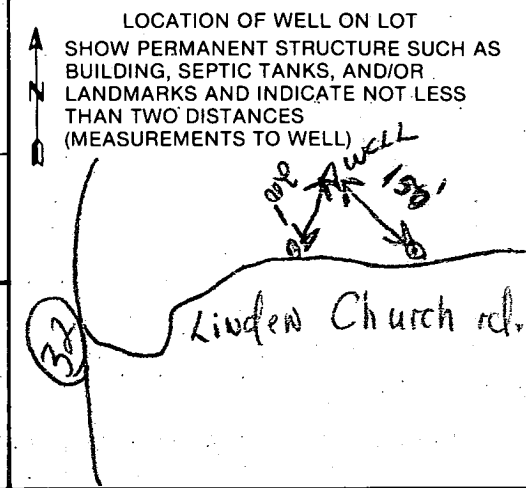 LOCATION OF WELL ON LOT
SHOW PERMANENT STRUCTURE SUCH AS
BUILDING, SEPTIC TANKS, AND/OR
N LANDMARKS AND INDICATE NOT LESS
THAN TWO DISTANCES
(MEASUREMENTS TO WELL)
WELL
Linden Church rd.
32